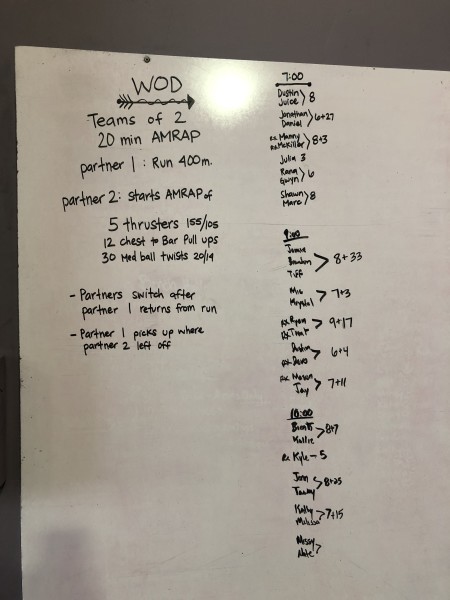 WOD
Teams of 2
20 min AMRAP
partner 1: Run 400m.
partner 2: starts AMRAP of
5 thrusters 155/105
12 Chest to Bar Pull ups
30 Med ball twists 20/14
- Partners switch after
partner 1 returns from run
- Partner 1 picks up where
partner 2 left off
7:00
Dustin
8
Jonathan
Daniel
6+27
Rx Manny
Rx McKiller
8+3
Julia 3
Rana
Gwyn
6
Shawn
Marc
8
9:00
Jamie
Brandon
Tiff
8+33
Mic
Krystal
7+3
Rx Ryan
Rx Trent
9+17
Dustin
6+4
Rx Mason
Jay
7+11
10:00
Brett
Kallie
8+7
Rx Kyle - 5
8+25
Kelly
Melissa
7+15
Missy